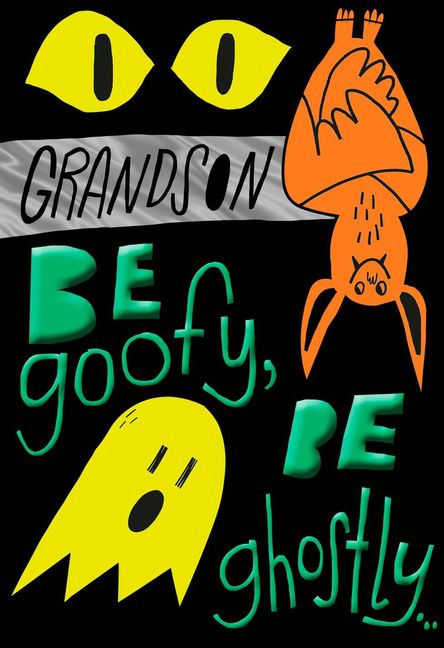 GRANDSON
BE
goofy,
BE
ghostly...